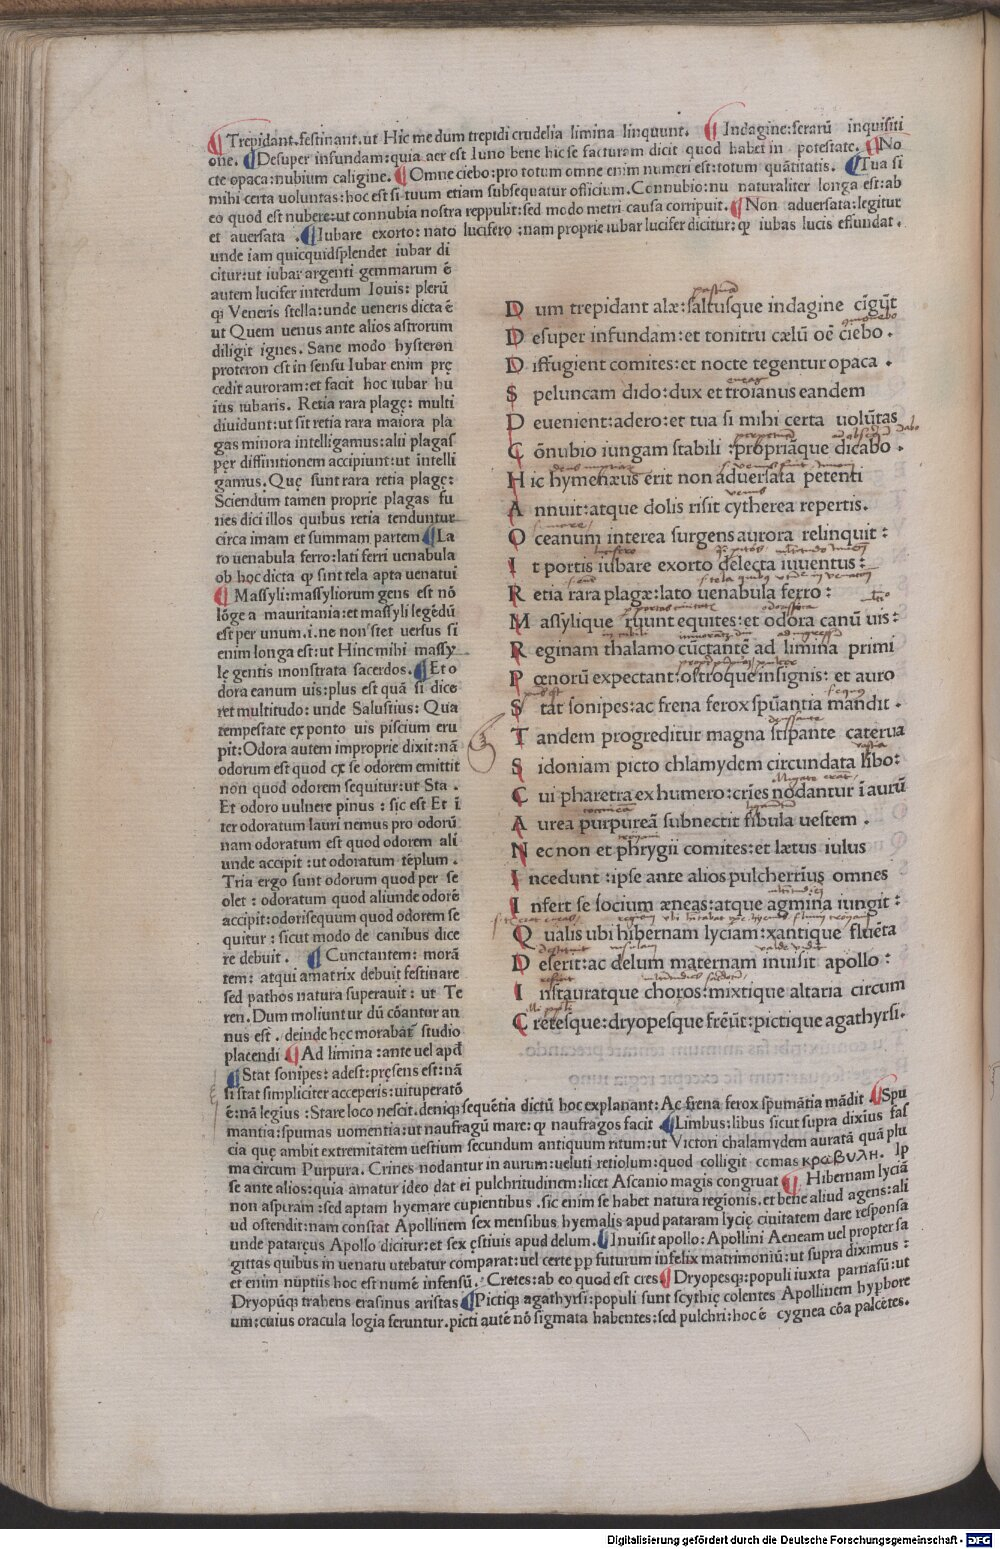 Trepidant.festinant.ut Hic me dum trepidi crudelia limina linquunt. Indagine:ferarū inquisiti
one. Desuper infundam:quia aer est Iuno bene hic se facturam dicit quod habet in potestate. No
cte opaca:nubium caligine. Omne ciebo:pro totum omne enim numeri est:totum quātitatis. Tua si
mihi certa voluntas:hoc est si tuum etiam subsequatur officium.Connubio:nu naturaliter longa est:ab
eo quod est nubere:ut connubia nostra reppulit:sed modo metri causa corripuit. Non aduersata:legitur
et auersata . Iubare exorto:nato lucifero :nam proprie iubar lucifer dicitur:qꝫ iubas lucis effundat.
unde iam quicquidsplendet iubar di
citur:ut iubar argenti gemmarum ē
autem lucifer interdum Iouis: plerū
qꝫ Veneris stella:unde ueneris dicta ē
ut Quem uenus ante alios astrorum
diligit ignes. Sane modo hysteron
proteron est in sensu Iubar enim prę
cedit auroram:et facit hoc iubar hu
ius iubaris. Retia rara plagę: multi
diuidunt:ut sit retia rara maiora pla
gas minora intelligamus:alii plagas
pęr diffinitionem accipiunt:ut intelli
gamus.Quę sunt rara retia plagę:
Sciendum tamen proprie plagas fu
nes dici illos quibus retia tenduntur
circa imam et summam partem La
to uenabula ferro:lati ferri uenabula
ob hoc dicta qꝫ sint tela apta uenatui
Massyli:massyliorum gens est nō
lōge a mauritania:et massyli legēdū
est per unum.i.ne non stet uersus si
enim longa est:ut Hinc mihi massy
lę gentis monstrata sacerdos. Et o
dora canum uis:plus est quā si dice
ret multitudo: unde Salustius: Qua
tempestate ex ponto uis piscium eru
pit:Odora autem improprie dixit:nā
odorum est quod ex se odorem emittit
non quod odorem sequitur:ut Sta .
Et odoro uulnere pinus : sic est Et ī
ter odoratum lauri nemus pro odorū
nam odoratum est quod odorem ali
unde accipit :ut odoratum tēplum .
Tria ergo sunt odorum quod per se
olet : odoratum quod aliunde odorē
accipit:odorisequum quod odorem se
quitur : sicut modo de canibus dice
re debuit . Cunctantem: morā
tem: atqui amatrix debuit festinare
sed pathos natura superauit : ut Te
ren.Dum moliuntur dū cōantur an
nus est . deinde hęc morabat̄ studio
placendi Ad limina :ante uel apd̄
Stat sonipes: adest:pręsens est:nā
si stat simpliciter acceperis:uituperatō
ē:nā legius : Stare loco nescit.deniqꝫ sequētia dictū hoc explanant: Ac frena ferox spumātia mādit Spu
mantia:spumas uomentia:ut naufragū mare: qꝫ naufragos facit Limbus:libus sicut supra dixius fas
cia quę ambit extremitatem uestium secundum antiquum ritum:ut Victori chalamydem auratā quā plu
ma circum Purpura. Crines nodantur in aurum:ueluti retiolum:quod colligit comas κροβυλη. Ip
se ante alios:quia amatur ideo dat ei pulchritudinem:licet Ascanio magis congruat Hibernam lyciā
non aspiram :sed aptam hyemare cupientibus .sic enim se habet natura regionis.et bene aliud agens:ali
ud ostendit:nam constat Apollinem sex mensibus hyemalis apud pataram lycię ciuitatem dare responsa
unde patareus Apollo dicitur:et sex ęstiuis apud delum. Inuisit apollo: Apollini Aeneam uel propter sa
gittas quibus in uenatu utebatur comparat:uel certe pp futurum infelix matrimoniū:ut supra diximus :
et enim nuptiis hoc est numē infensū. Cretes:ab eo quod est cres Dryopesqꝫ:populi iuxta parnasū:ut
Dryopūqꝫ trahens erasinus aristas Pictiqꝫ agathyrsi:populi sunt scythię colentes Apollinem hyperbore
um:cuius oracula logia feruntur.picti autē nō stigmata habentes:sed pulchri:hoc ē cygnea cōa palcētes.
Dum trepidant alæ:saltusque indagine cīgūt
Desuper infundam:et tonitru cælū oē ciebo .
Diffugient comites:et nocte tegentur opaca .
Speluncam dido:dux et troianus eandem
Deuenient:adero:et tua si mihi certa uolūtas
Cōnubio iungam stabili :propriāque dicabo .
Hic hymenæus erit non aduersata petenti
Annuit:atque dolis risit cytherea repertis.
Oceanum interea surgens aurora relinquit :
It portis iubare exorto delecta iuuentus:
Retia rara plagæ:lato uenabula ferro :
Massylique ruunt equites:et odora canū uis:
Reginam thalamo cūctantē ad limina primi
Pœnorū expectant:ostroque insignis: et auro
Stat sonipes:ac frena ferox spūantia mandit .
Tandem progreditur magna stipante caterua
Sidoniam picto chlamydem circundata libo:
Cui pharetra ex humero:crīes nodantur ī aurū
Aurea purpureā subnectit fibula uestem .
Nec non et phrygii comites:et lætus iulus
Incedunt :ipse ante alios pulcherrīus omnes
Infert se socium æneas:atque agmina iungit :
Qualis ubi hibernam lyciam:xantique fluēta
Deserit:ac delum maternam inuisit apollo :
Instauratque choros:mixtique altaria circum
Cretesque:dryopesque frēūt:pictique agathyrsi.
Digitalisierung gefördert durch die Deutsche Forschungsgemeinschaft - DFG